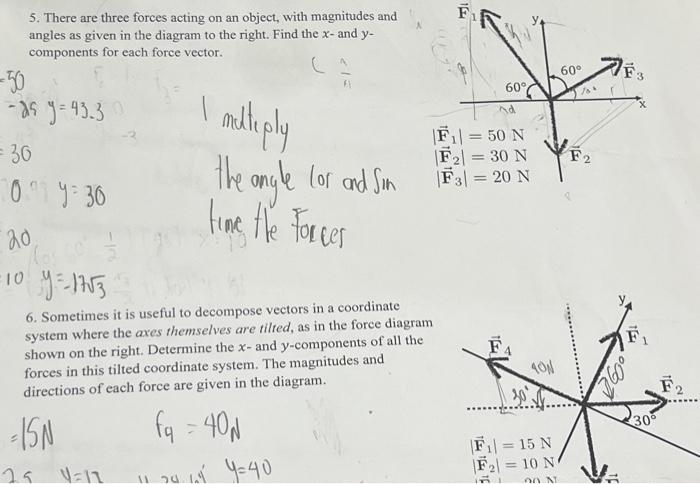 5. There are three forces acting on an object, with magnitudes and
angles as given in the diagram to the right. Find the x- and y-
components for each force vector.
F⃗₁
y
60°
60°
F⃗₃
x
|F⃗₁| = 50 N
|F⃗₂| = 30 N
|F⃗₃| = 20 N
F⃗₂
50
-25 y=43.3
= 30
0 y=30
20
10
I multiply
the angle cos and sin
time the Forces
6. Sometimes it is useful to decompose vectors in a coordinate
system where the axes themselves are tilted, as in the force diagram
shown on the right. Determine the x- and y-components of all the
forces in this tilted coordinate system. The magnitudes and
directions of each force are given in the diagram.
y
F⃗₁
F⃗₄
40N
60°
F⃗₂
30°
30°
|F⃗₁| = 15 N
|F⃗₂| = 10 N
=15N
F4 = 40N
y=40